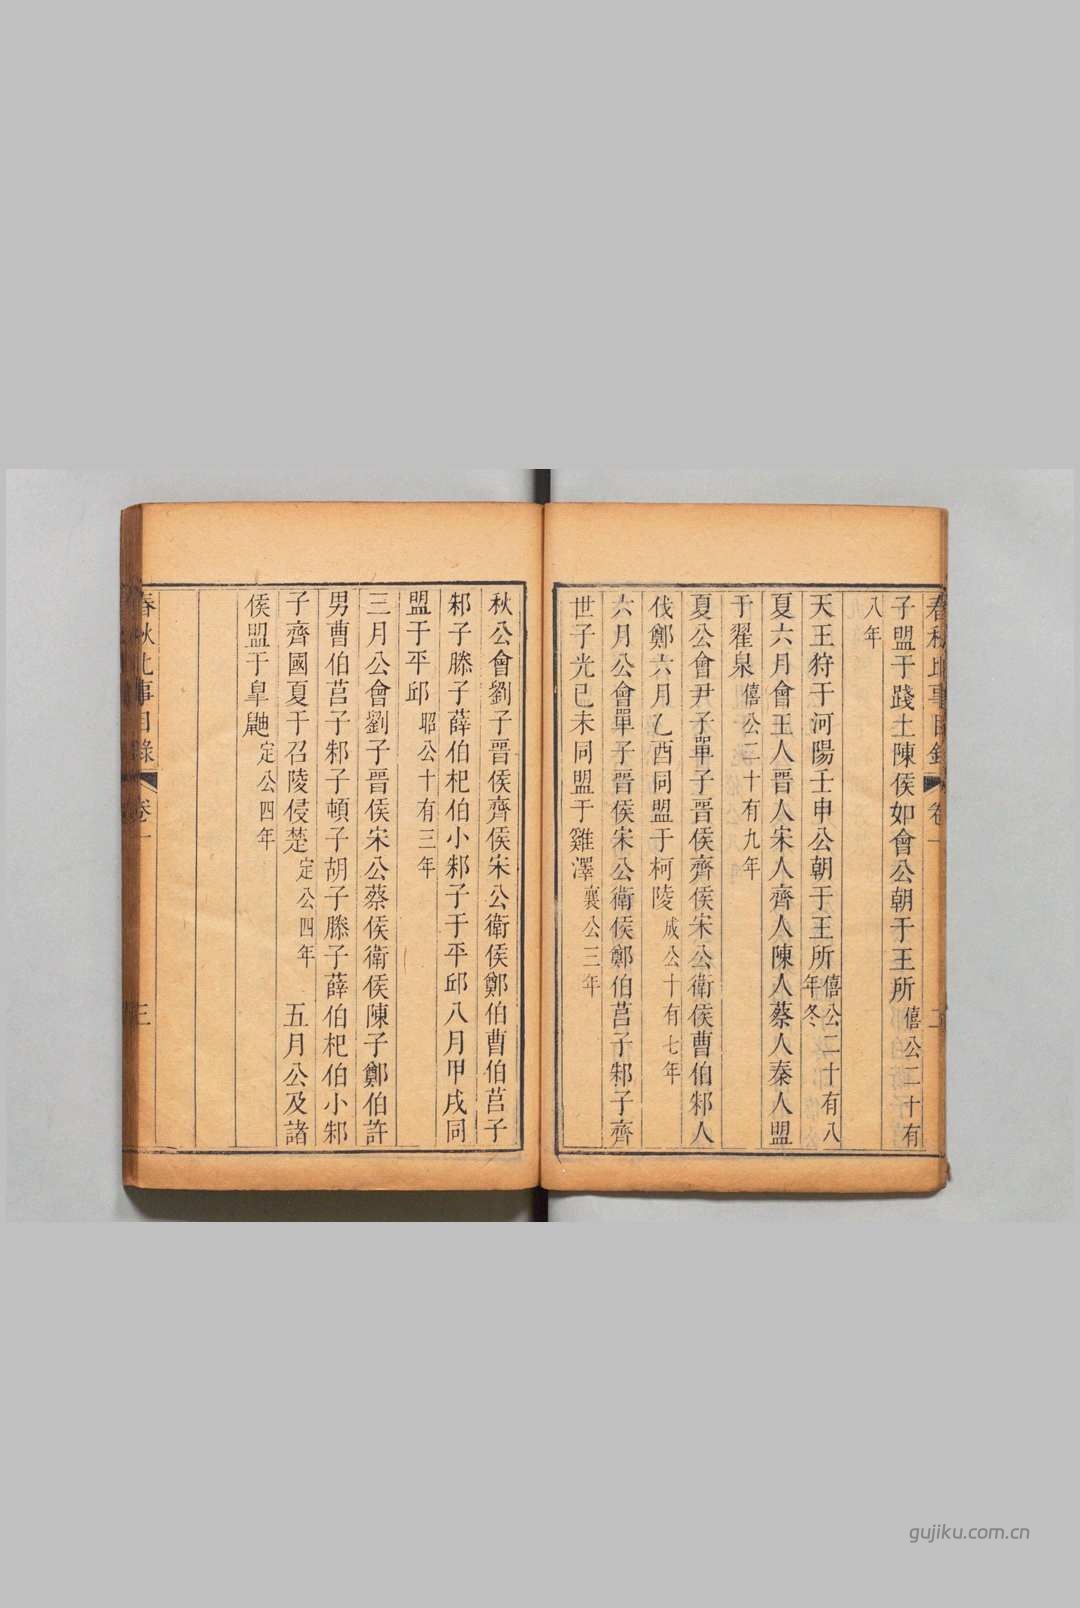 春秋比事目錄 卷一 二
子盟于踐土陳侯如會公朝于王所僖公二十有
八年
天王狩于河陽壬申公朝于王所僖公二十有八年冬
夏六月會王人晉人宋人齊人陳人蔡人秦人盟
于翟泉僖公二十有九年
夏公會尹子單子晉侯齊侯宋公衛侯曹伯邾人
伐鄭六月乙酉同盟于柯陵成公十有七年
六月公會單子晉侯宋公衛侯鄭伯莒子邾子齊
世子光己未同盟于雞澤襄公三年
秋公會劉子晉侯齊侯宋公衛侯鄭伯曹伯莒子
邾子滕子薛伯杞伯小邾子于平邱八月甲戌同
盟于平邱昭公十有三年
三月公會劉子晉侯宋公蔡侯衛侯陳子鄭伯許
男曹伯莒子邾子頓子胡子滕子薛伯杞伯小邾
子齊國夏于召陵侵楚定公四年 五月公及諸
侯盟于皐鼬定公四年
春秋比事目錄 卷一 三
gujiku.com.cn